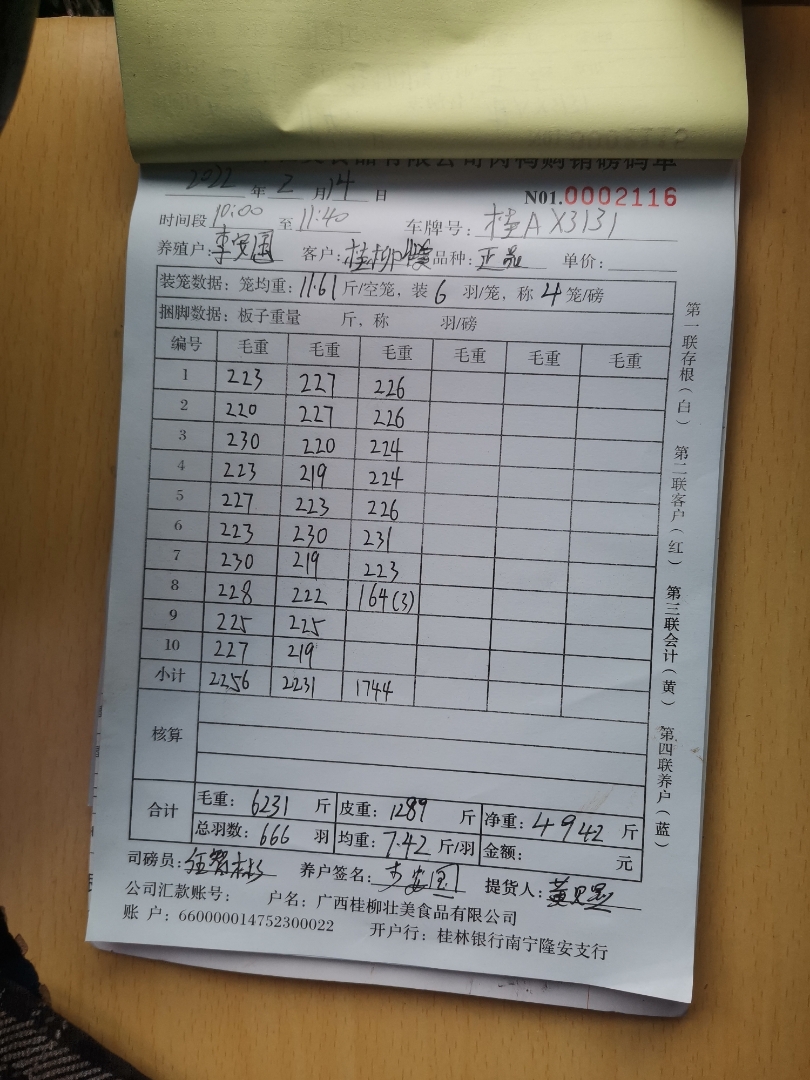 食品有限公司肉鸭购销磅码单
2022 年 2 月 14 日 NO1.0002116
时间段 10:00 至 11:40 车牌号: 桂AX3131
养殖户: 李安国 客户: 桂柳 品种: 正品 单价:
装笼数据: 笼均重: 11.61 斤/空笼, 装 6 羽/笼, 称 4 笼/磅
捆脚数据: 板子重量 斤, 称 羽/磅
编号 毛重 毛重 毛重 毛重 毛重 毛重
1 223 227 226
2 220 227 226
3 230 220 224
4 223 219 224
5 227 223 226
6 223 230 231
7 230 219 223
8 228 222 164(3)
9 225 225
10 227 219
小计 2256 2231 1744
核算
合计 毛重: 6231 斤 皮重: 1289 斤 净重: 4942 斤
总羽数: 666 羽 均重: 7.42 斤/羽 金额: 元
司磅员: 养户签名: 李安国 提货人: 黄
公司汇款账号: 户名: 广西桂柳壮美食品有限公司
账 户: 660000014752300022 开户行: 桂林银行南宁隆安支行
第一联存根(白) 第二联客户(红) 第三联会计(黄) 第四联养户(蓝)